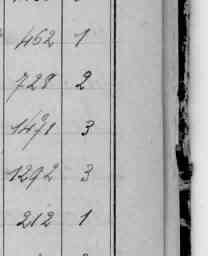 462 1
728 2
1471 3
1292 3
212 1